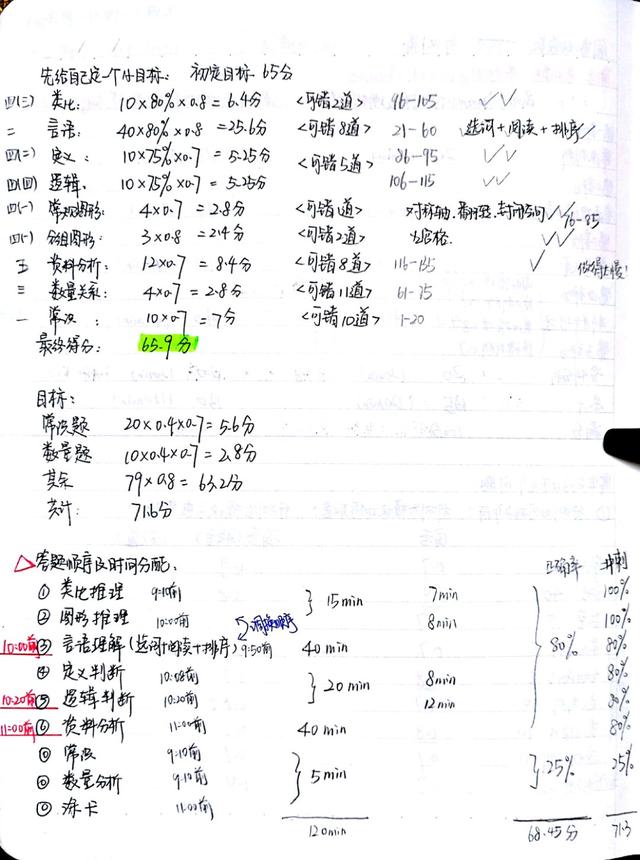 先给自己定一个小目标: 初定目标 65分
四(三) 类比: 10×80%×0.8=6.4分 <可错2道> 96-105 ✓✓
二 言语: 40×80%×0.8=25.6分 <可错8道> 21-60 选词+阅读+排序✓
四(二) 定义: 10×75%×0.7=5.25分 <可错5道> 86-95 ✓✓
四(四) 逻辑. 10×75%×0.7=5.25分 106-115 ✓✓
四(一) 常规图形: 4×0.7=2.8分 <可错1道> 对称轴. 封闭空间 ✓✓ 76-85
四(一) 分组图形: 3×0.8=2.4分 <可错2道> 为合格. ✓✓
五 资料分析: 12×0.7=8.4分 <可错8道> 116-135 ✓ 做得太慢!
三 数量关系: 4×0.7=2.8分 <可错11道> 61-75
一 常识: 10×0.7=7分 <可错10道> 1-20
最终得分: 65.9分
目标:
常识题 20×0.4×0.7=5.6分
数量题 10×0.4×0.7=2.8分
其余 79×0.8=63.2分
共计: 71.6分
△答题顺序及时间分配: 正确率 冲刺
① 类比推理 9:10前 15min 7min 100%
② 图形推理 10:00前 8min 100%
调换顺序
10:00前 ③ 言语理解(选词+阅读+排序) 9:50前 40min 80% 80%
④ 定义判断 10:08前 20min 8min 80%
10:20前 ⑤ 逻辑判断 10:20前 12min 80%
11:00前 ⑥ 资料分析 11:00前 40min 80%
⓪ 常识 9:10前 5min 25% 25%
⓪ 数量分析 9:10前
⓪ 涂卡 11:00前
120min 68.45分 71.3